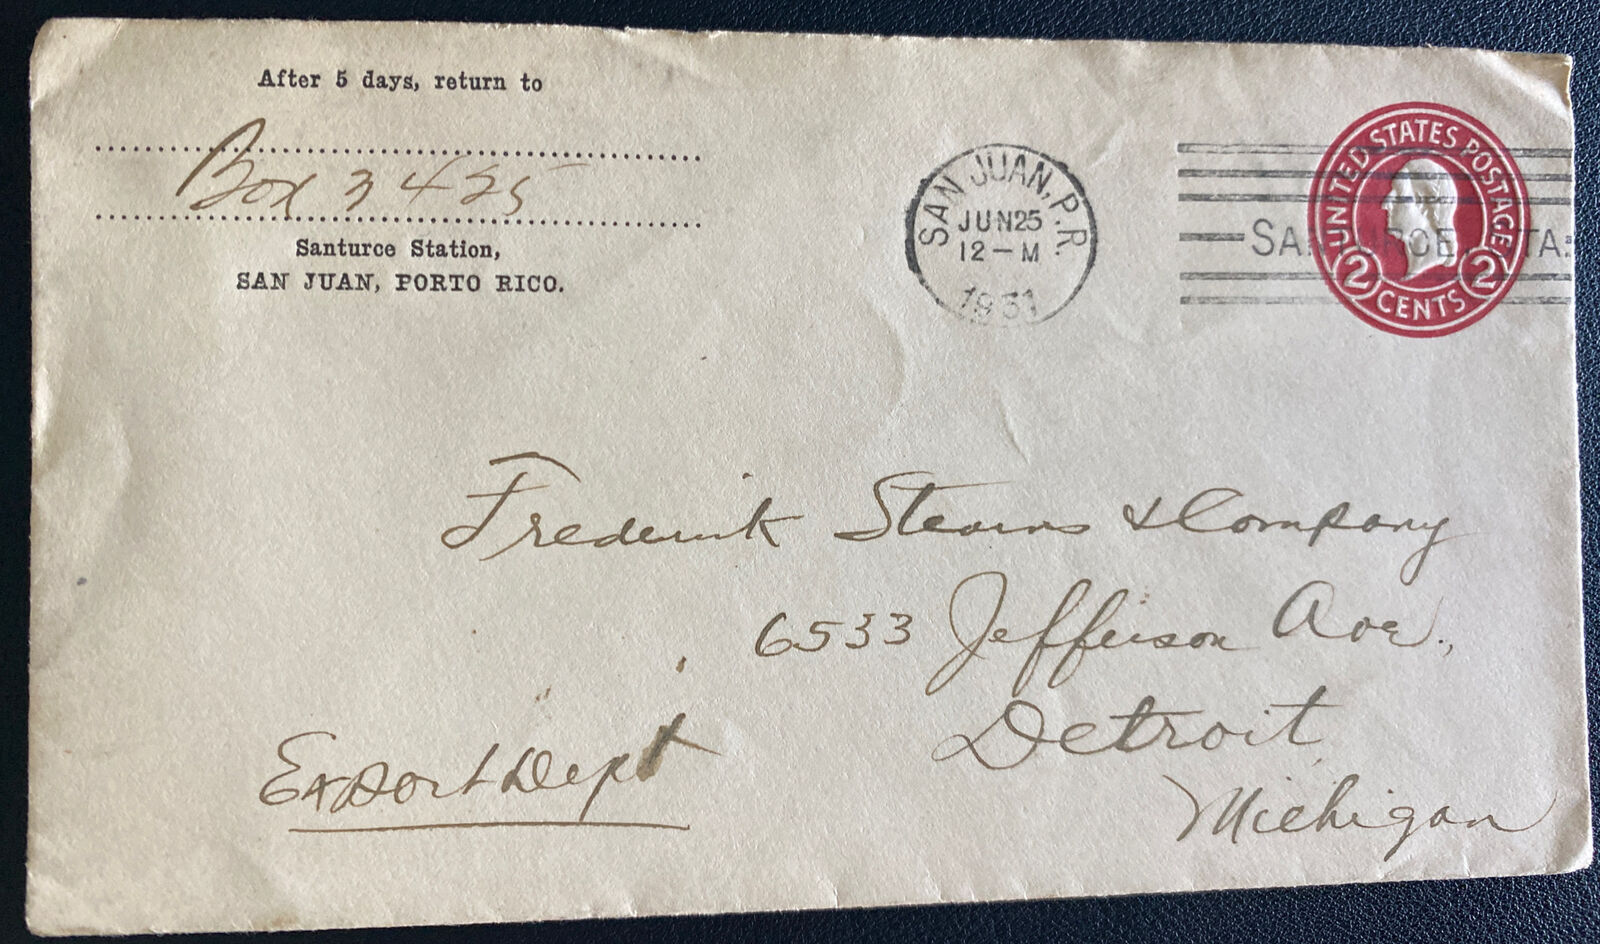 After 5 days, return to
Box 3425
Santurce Station,
SAN JUAN, PORTO RICO.
SAN JUAN, P.R.
JUN 25
12 - M
1931
UNITED STATES POSTAGE
2 CENTS 2
Frederick Stearns & Company
6533 Jefferson Ave.,
Detroit
Michigan
Export Dept